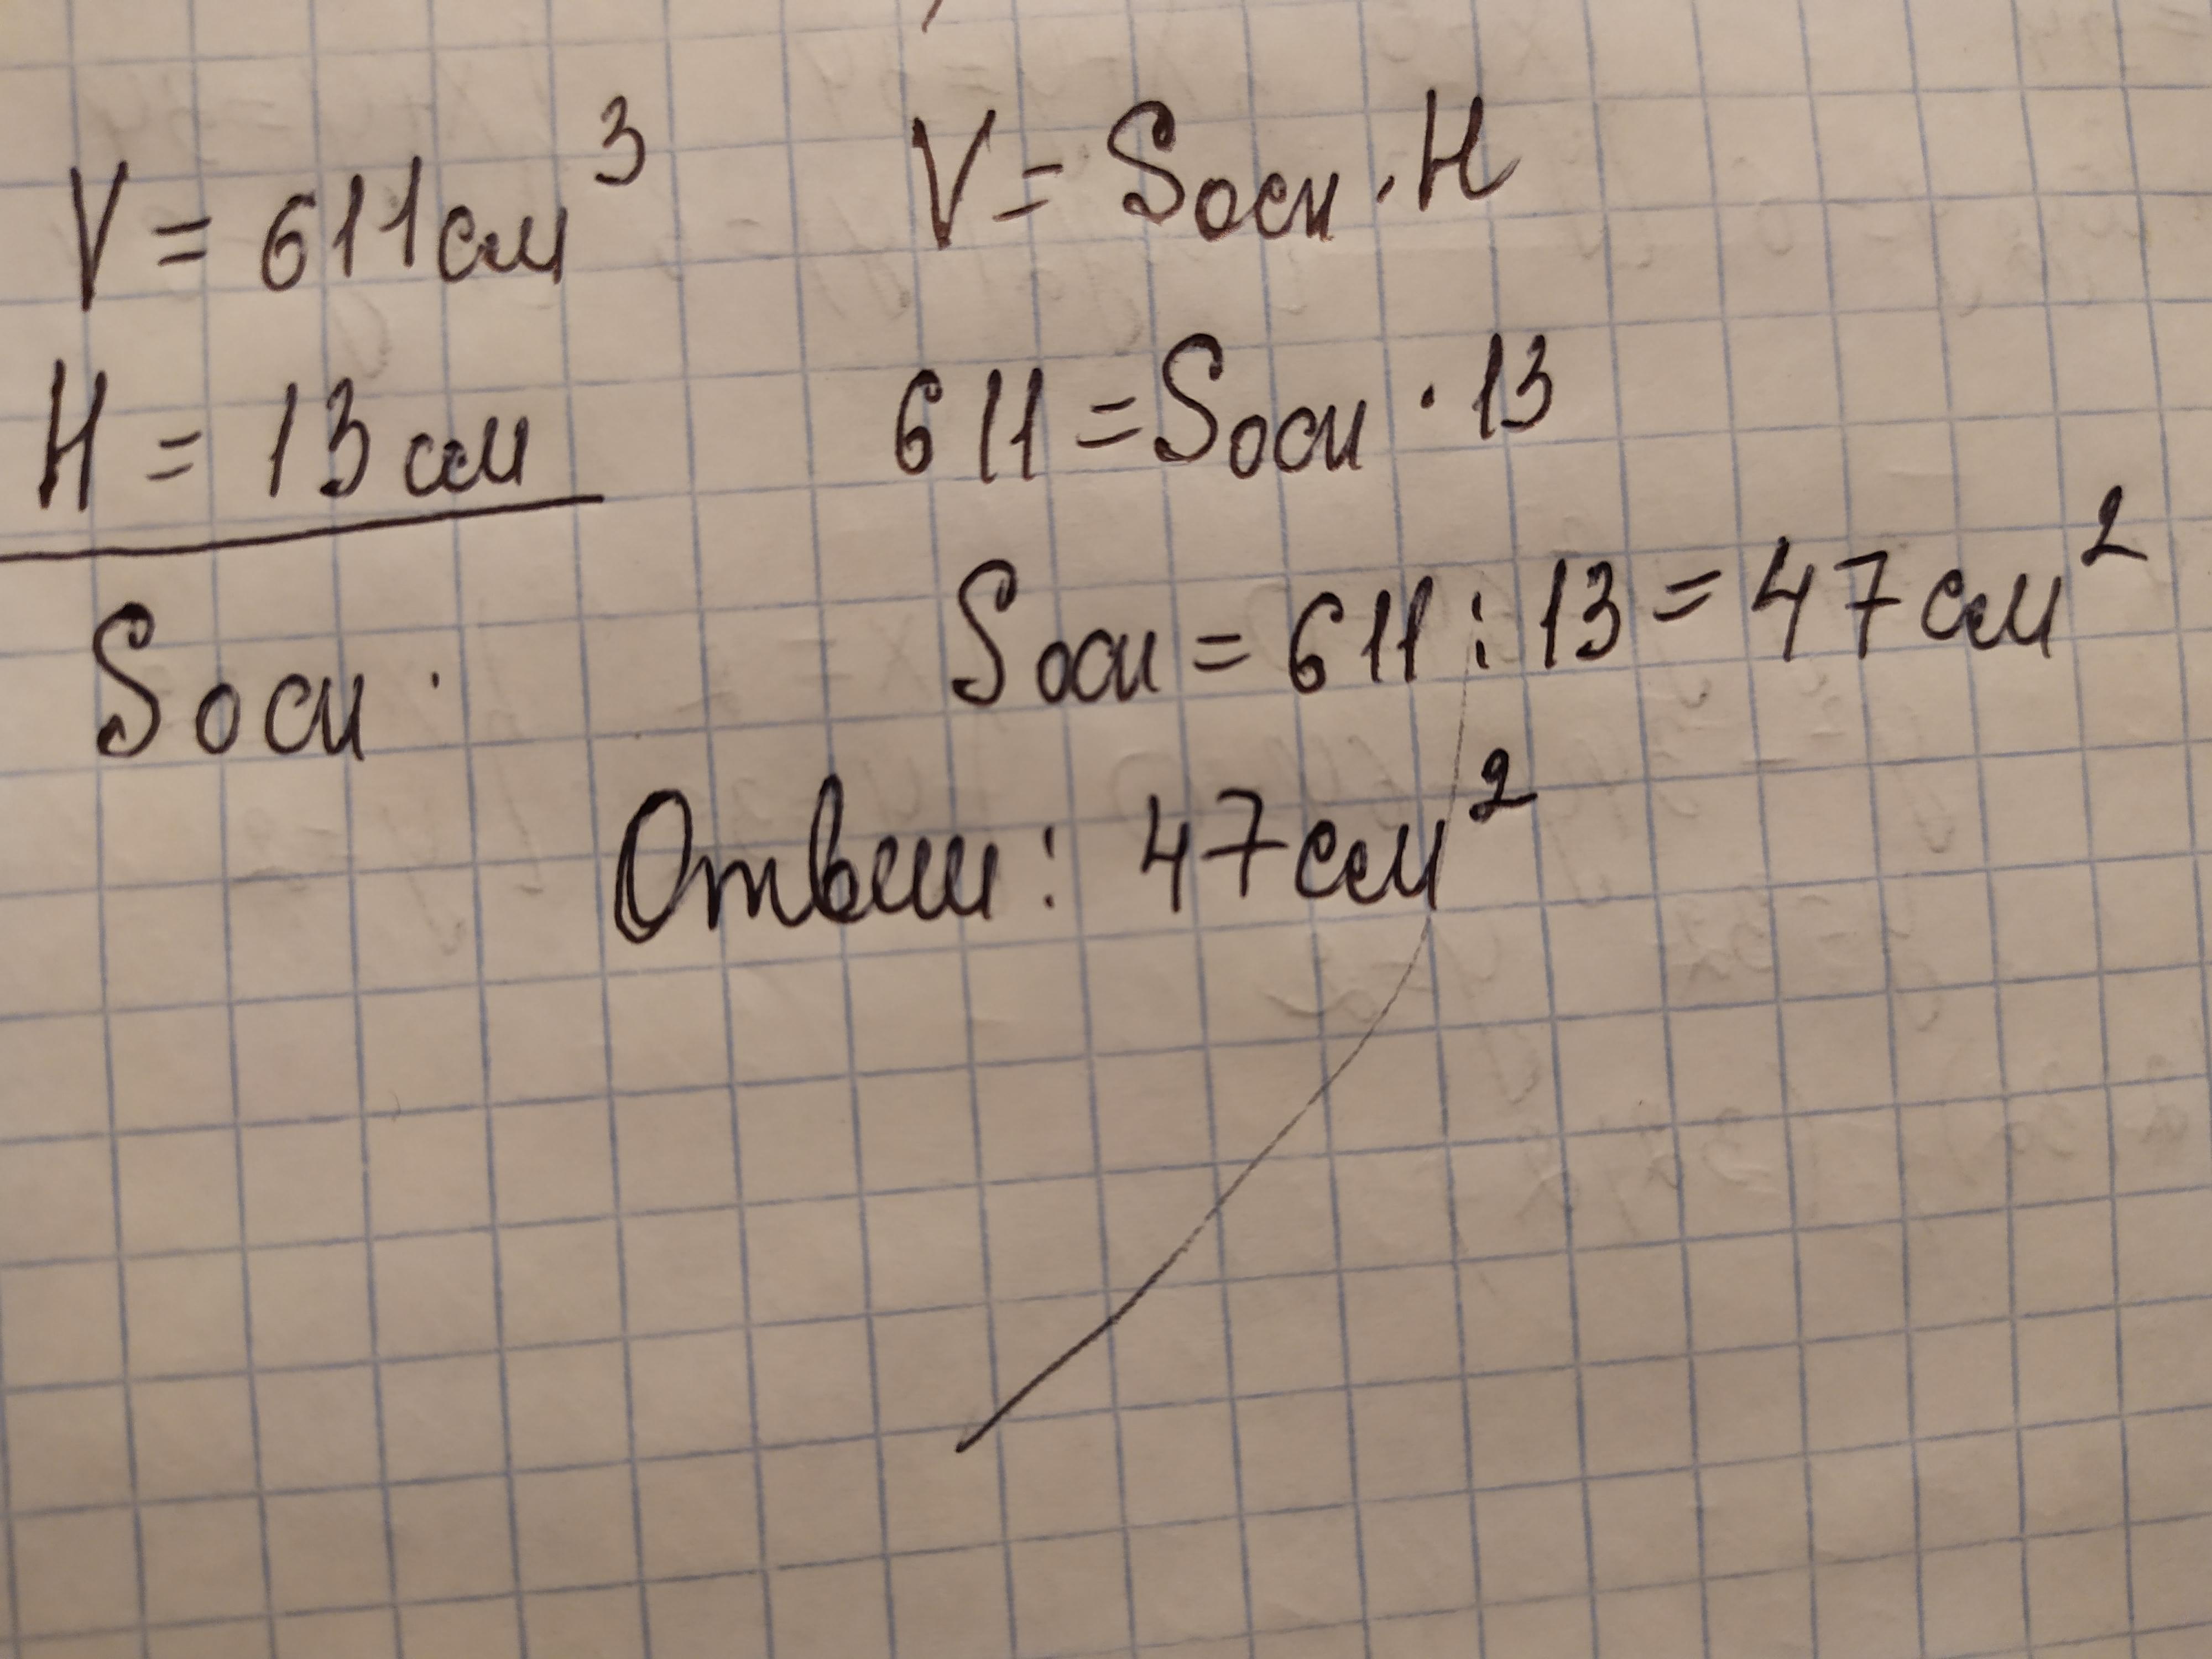 V = 611 см³
H = 13 см
Sосн.
V = Sосн · H
611 = Sосн · 13
Sосн = 611 : 13 = 47 см²
Ответ: 47 см²